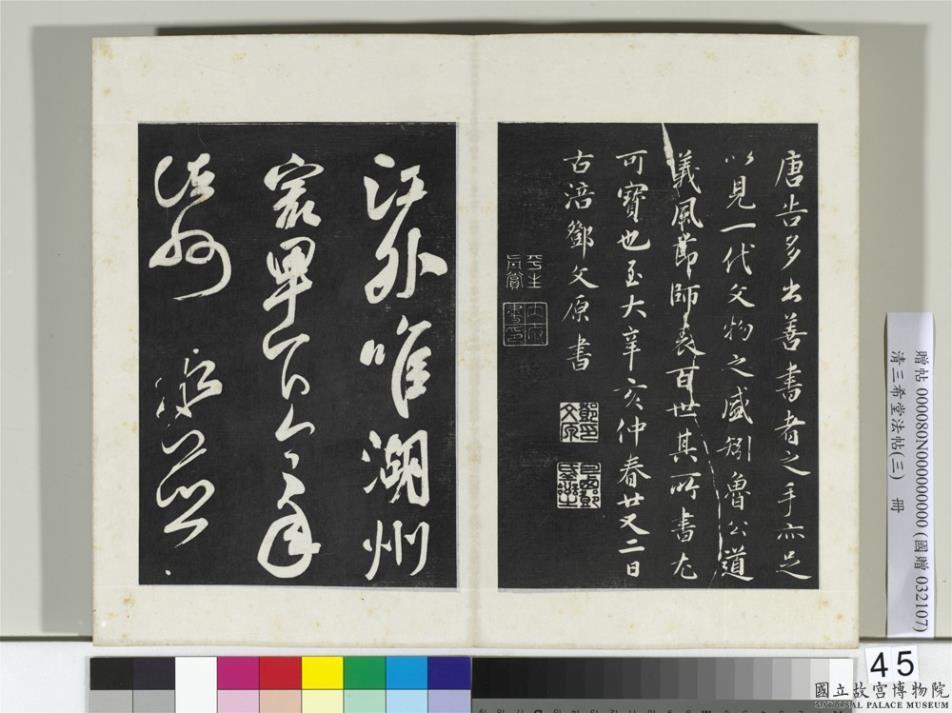 唐告多出善書者之手亦足
以見一代文物之盛矧魯公道
義風節師表百世其所書尤
可寶也至大辛亥仲春廿又二日
古涪鄧文原書
平生
真賞
江外唯湖州
最卑下今年
諸州水並
贈帖 000080N000000000 (國贈 032107)
清三希堂法帖(三) 冊
45
國立故宮博物院
NATIONAL PALACE MUSEUM